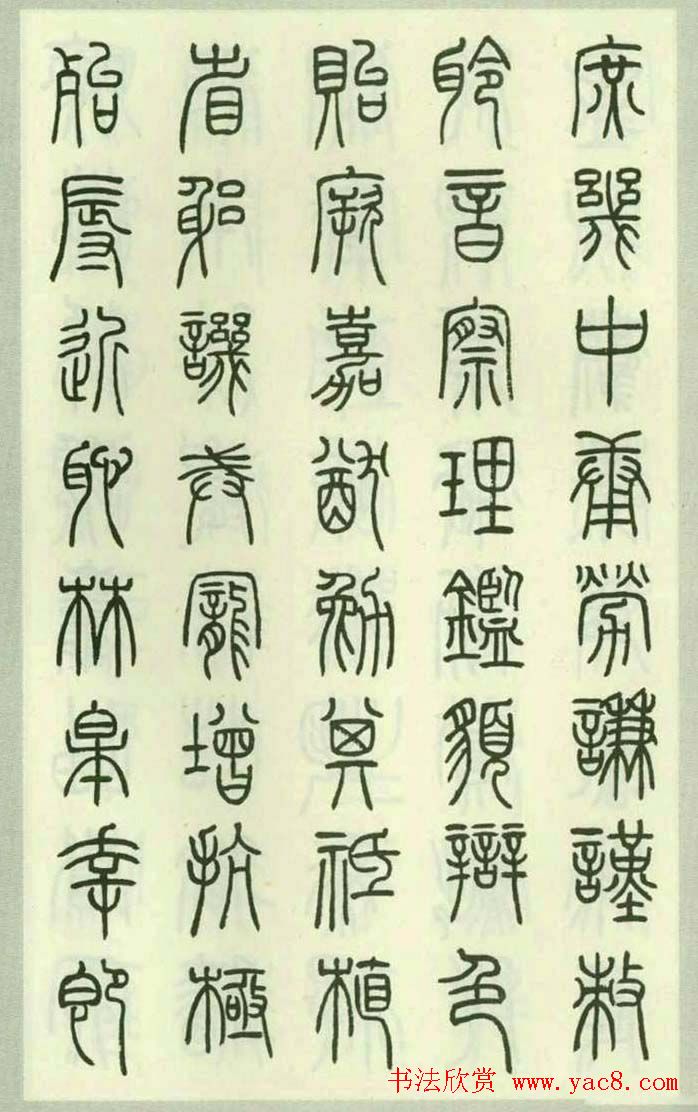 庶幾中庸勞謙謹敕
聆音察理鑑貌辯色
貽厥嘉猷勉其祗植
省躬譏誡寵增抗極
殆辱近恥林皋幸即
书法欣赏 www.yac8.com